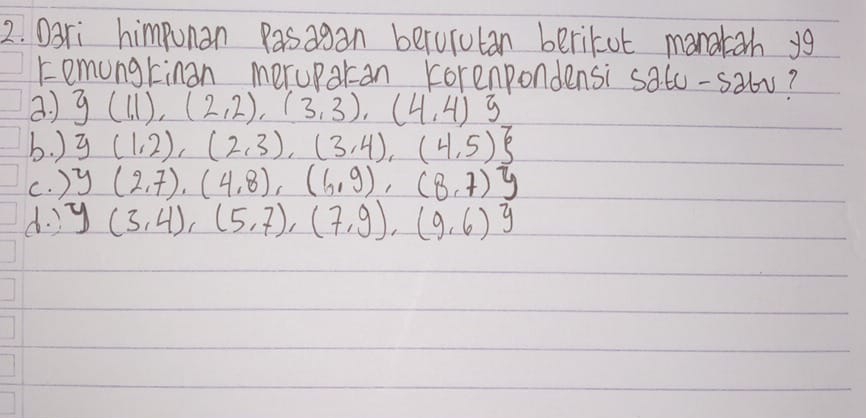 2. Dari himpunan Pasagan berurutan berikut manakah yg
kemungkinan merupakan korenpondensi satu - satu?
a.) { (1,1), (2,2), (3,3), (4,4) }
b.) { (1,2), (2,3), (3,4), (4,5) }
c.) { (2,7), (4,8), (6,9), (8,7) }
d.) { (3,4), (5,7), (7,9), (9,6) }